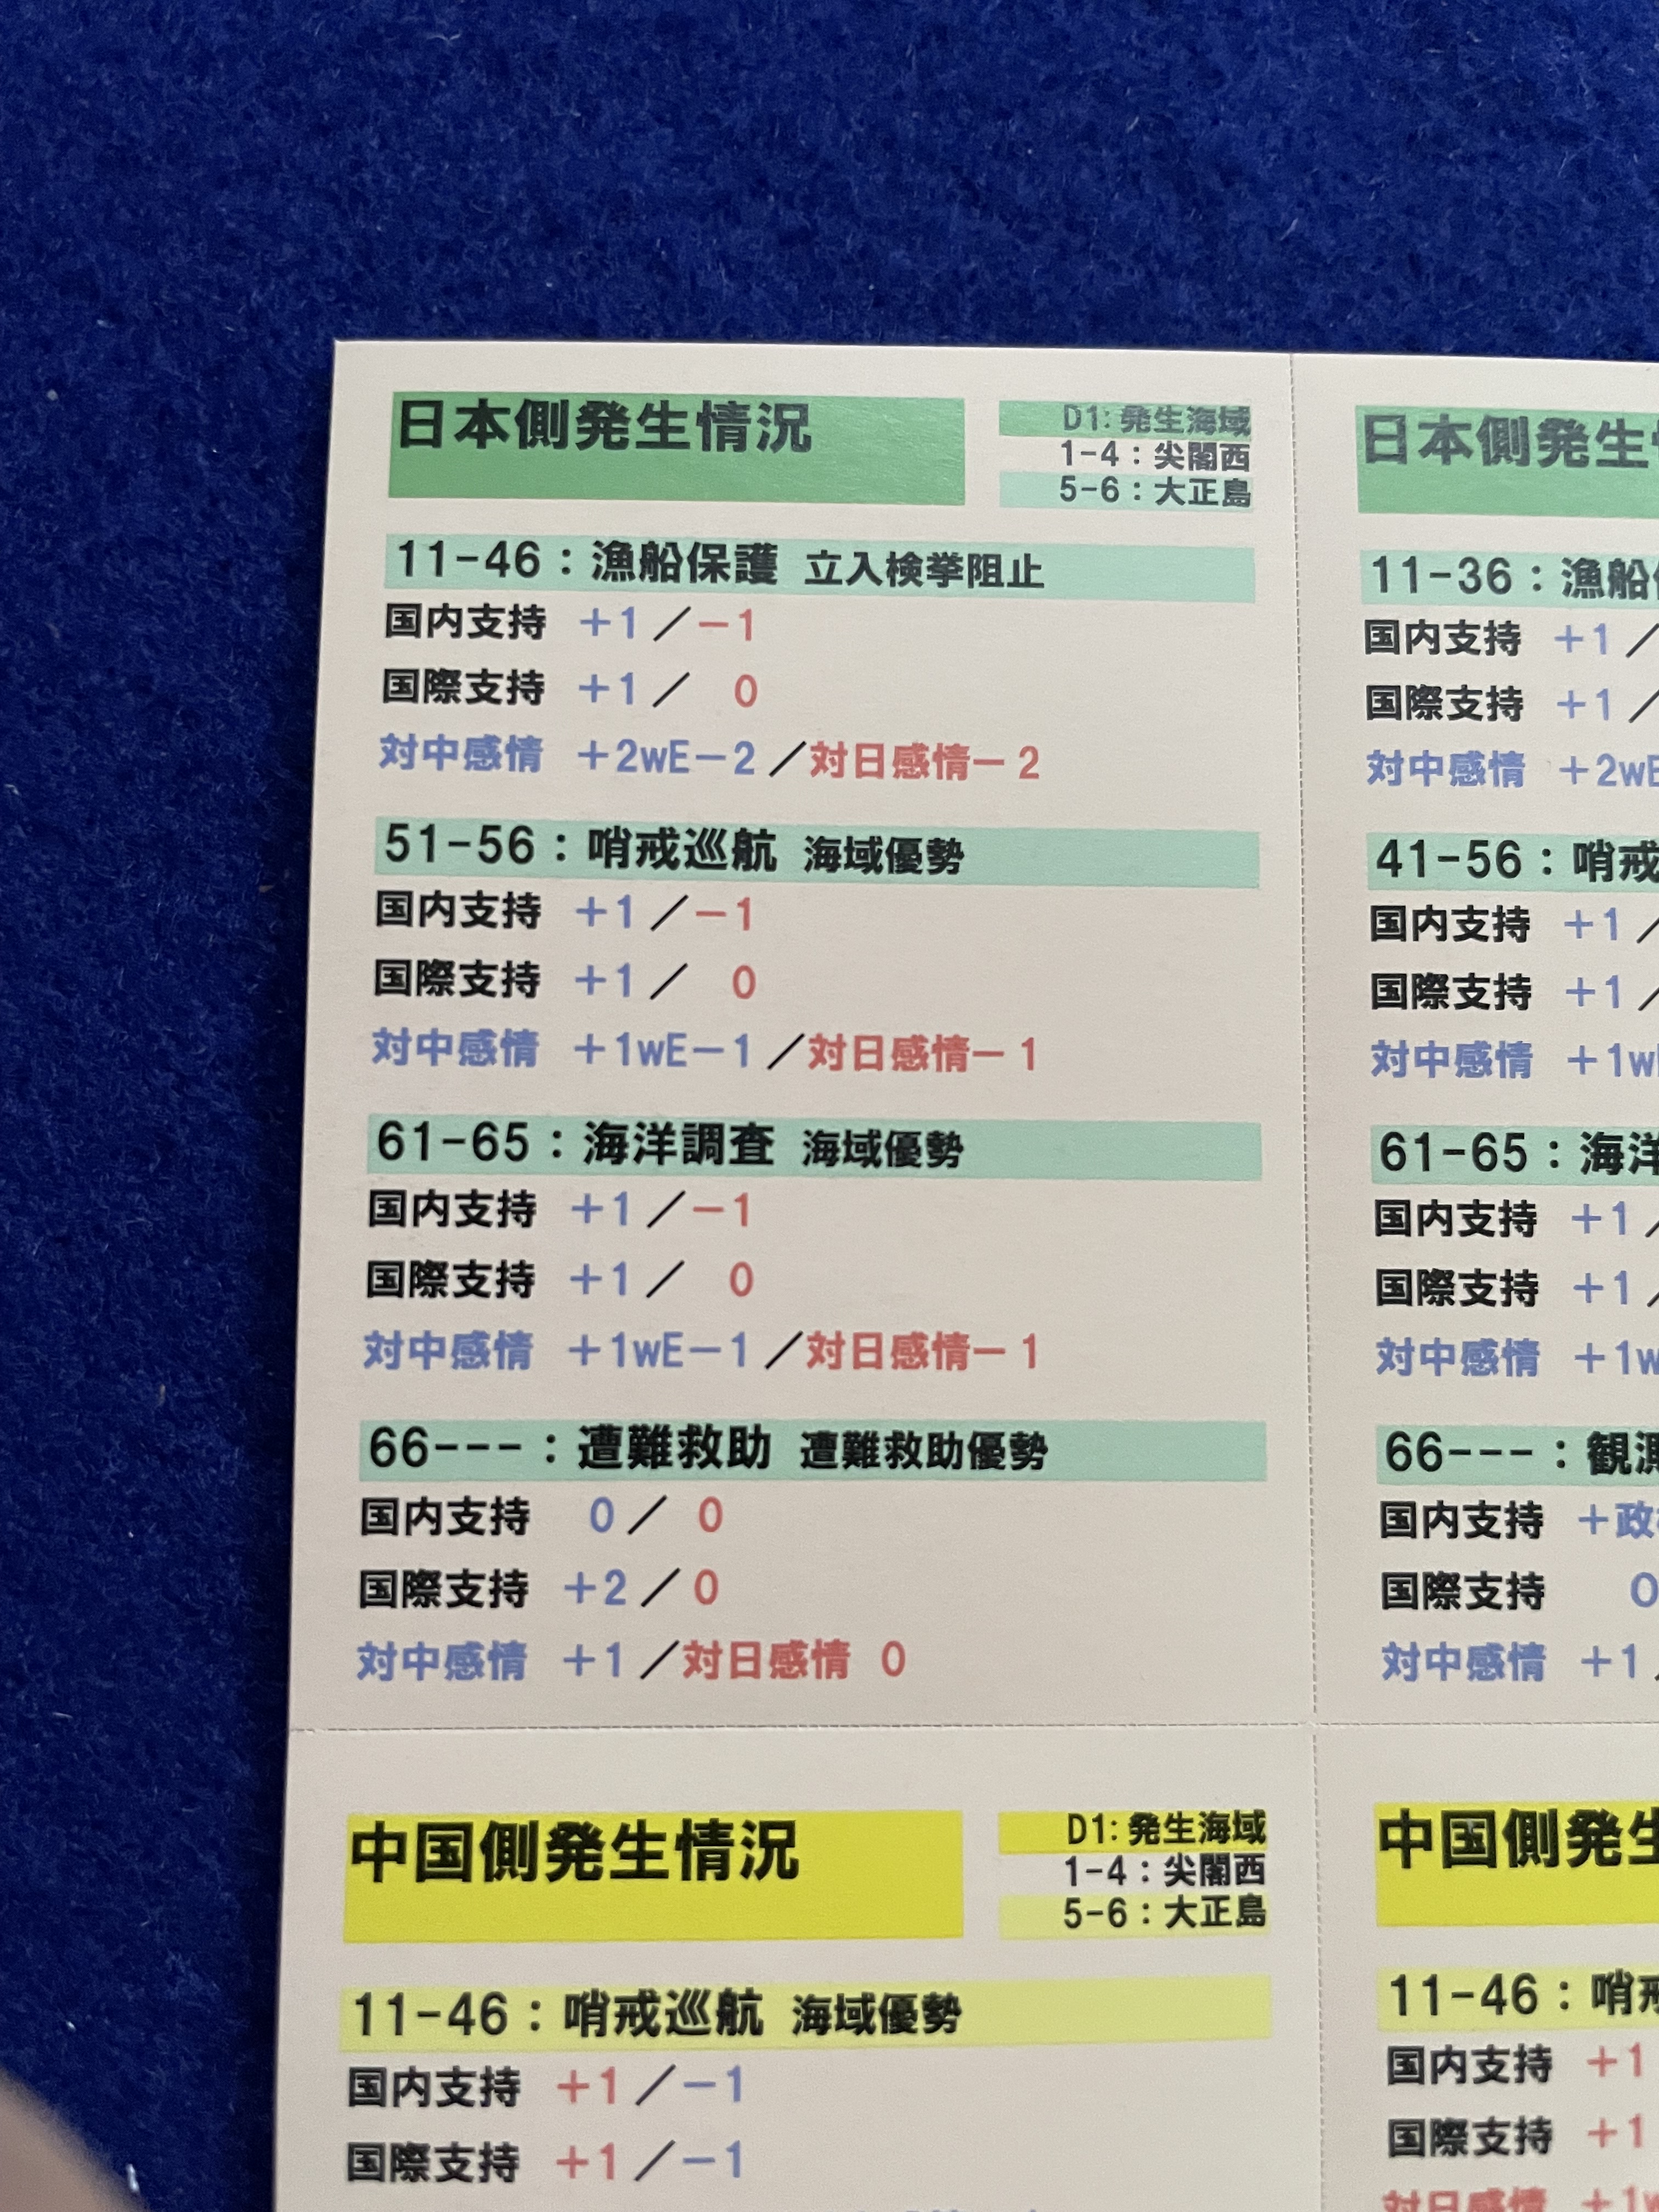 日本側発生情況
D1: 発生海域
1-4：尖閣西
5-6：大正島
11-46：漁船保護 立入検挙阻止
国内支持 +1／-1
国際支持 +1／ 0
対中感情 +2wE-2／対日感情-2
51-56：哨戒巡航 海域優勢
国内支持 +1／-1
国際支持 +1／ 0
対中感情 +1wE-1／対日感情-1
61-65：海洋調査 海域優勢
国内支持 +1／-1
国際支持 +1／ 0
対中感情 +1wE-1／対日感情-1
66---：遭難救助 遭難救助優勢
国内支持 0／ 0
国際支持 +2／0
対中感情 +1／対日感情 0
日本側発生
11-36：漁船
国内支持 +1／
国際支持 +1／
対中感情 +2w
41-56：哨戒
国内支持 +1／
国際支持 +1／
対中感情 +1w
61-65：海洋
国内支持 +1／
国際支持 +1／
対中感情 +1w
66---：観測
国内支持 +政
国際支持 0
対中感情 +1
中国側発生情況
D1: 発生海域
1-4：尖閣西
5-6：大正島
11-46：哨戒巡航 海域優勢
国内支持 +1／-1
国際支持 +1／-1
中国側発生
11-46：哨戒
国内支持 +1
国際支持 +1
対日感情 +1w